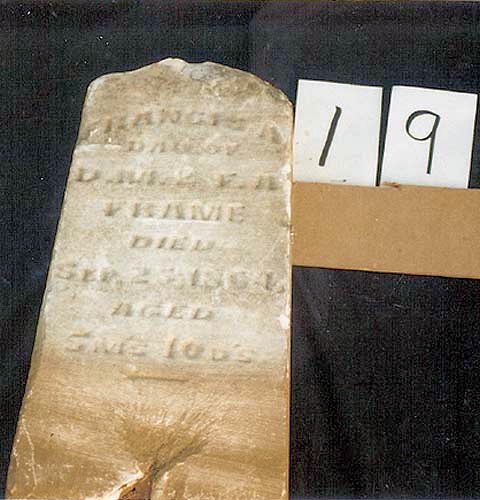 FRANCIS A
DAU OF
D. M. & F. A.
FRAME
DIED
SEP. 25, 1864
AGED
5 MS 10 D'S
19